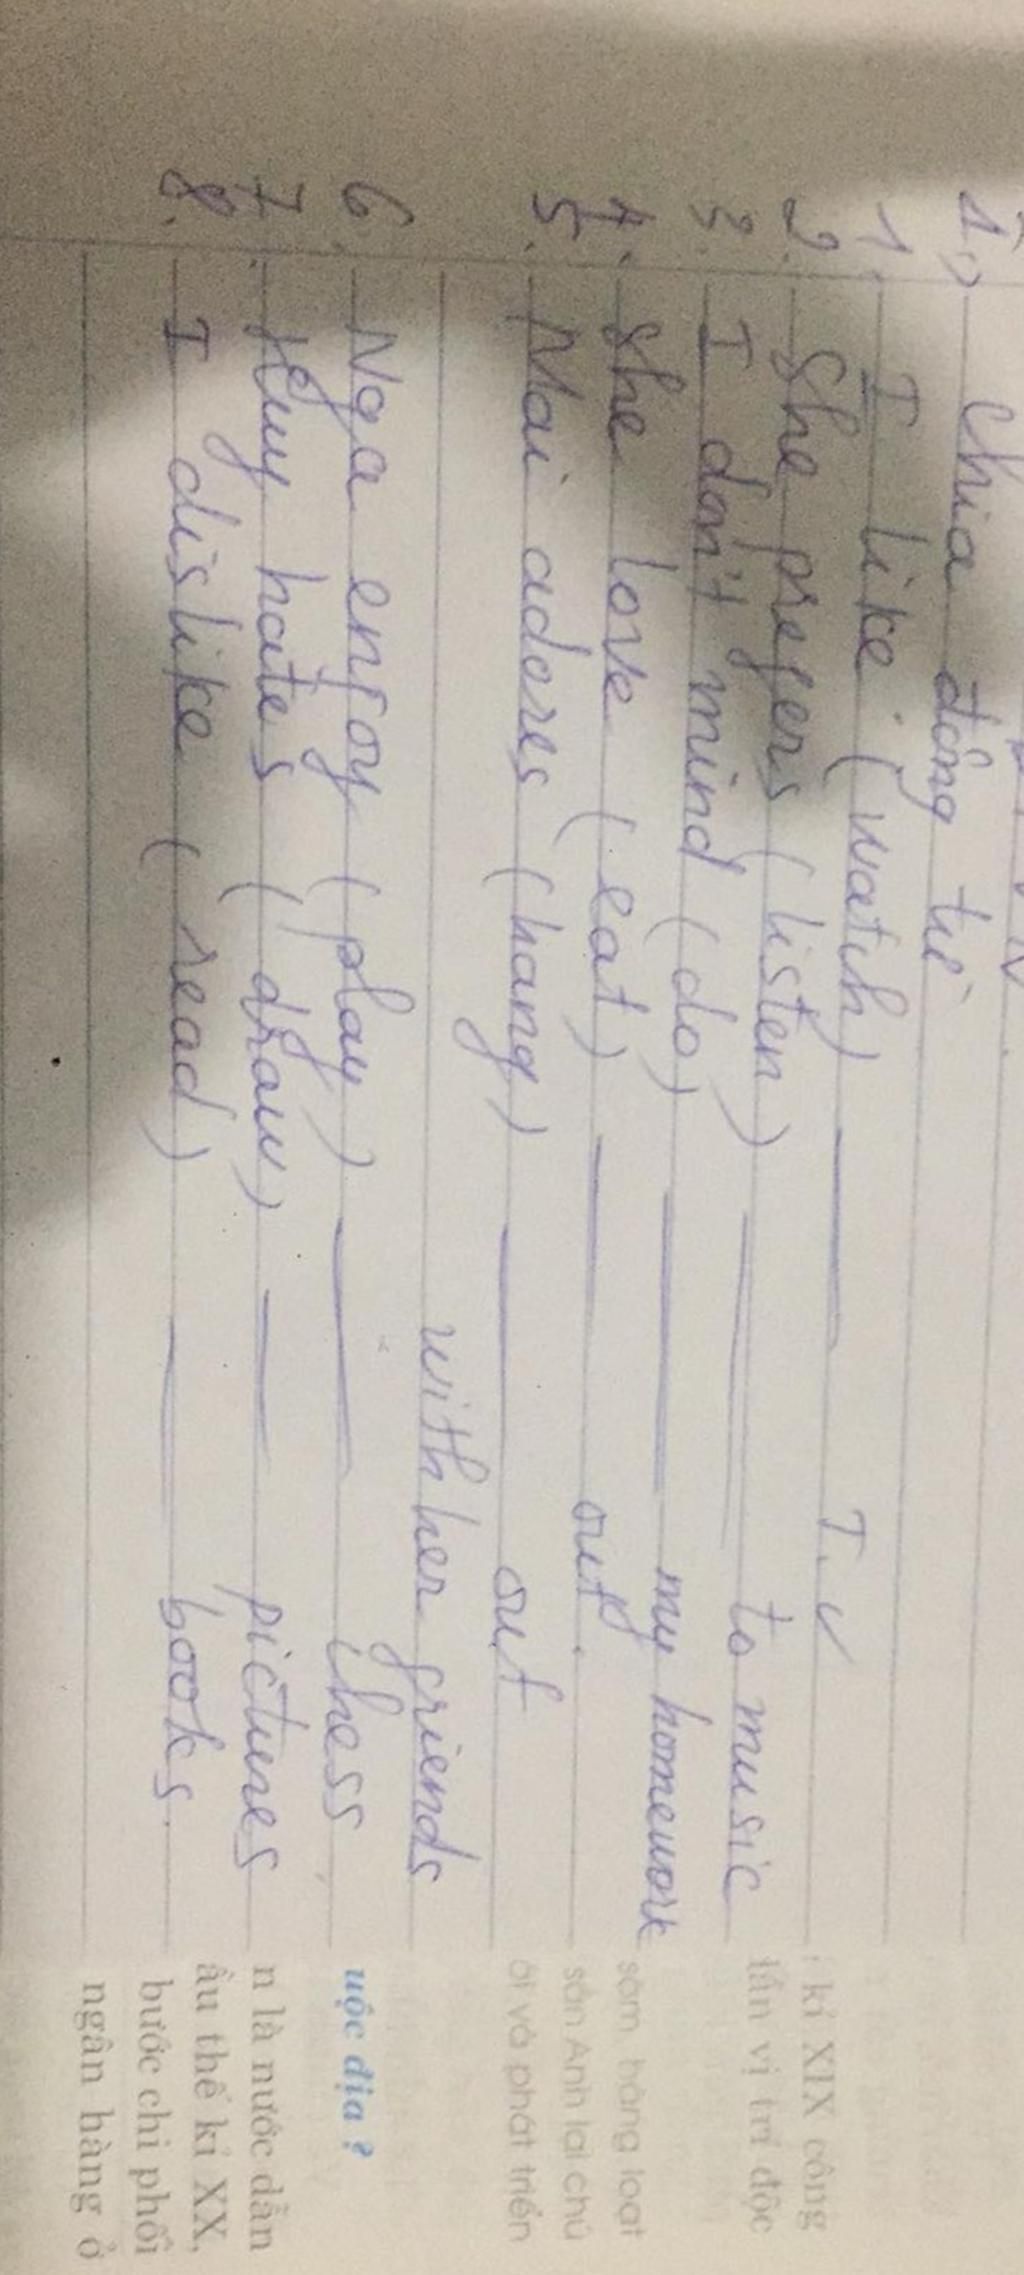 1.) Chia động từ
1. I like (watch) ______ T.V
2. She prefers (listen) ______ to music
3. I don't mind (do) ______ my homework
4. She love (eat) ______ out.
5. Mai adores (hang) ______ out
with her friends
6. Nga enjoy (play) ______ chess
7. Huy hates (draw) ______ pictures
8. I dislike (read) ______ books.
kỉ XIX công
lấn vị trí độc
sớm, hàng loạt
sản Anh lại chú
ời và phát triển
uộc địa ?
n là nước dẫn
ầu thế kỉ XX,
bước chi phối
ngân hàng ở